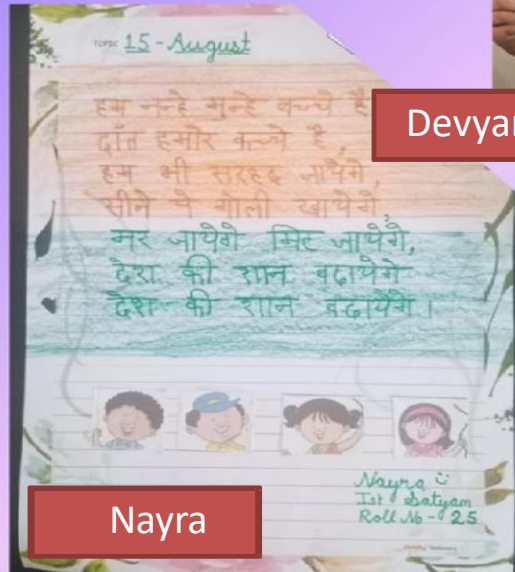 TOPIC 15 - August
Devyan
हम नन्हे मुन्हे बच्चे है
दाँत हमोर कच्चे है,
हम भी सरहद जायेंगे,
सीने पे गोली खायेंगे,
मर जायेंगे मिट जायेंगे,
देश की शान बढायेंगे
देश की शान बढायेंगे।
Nayra
Ist Satyam
Roll No - 25
Nayra